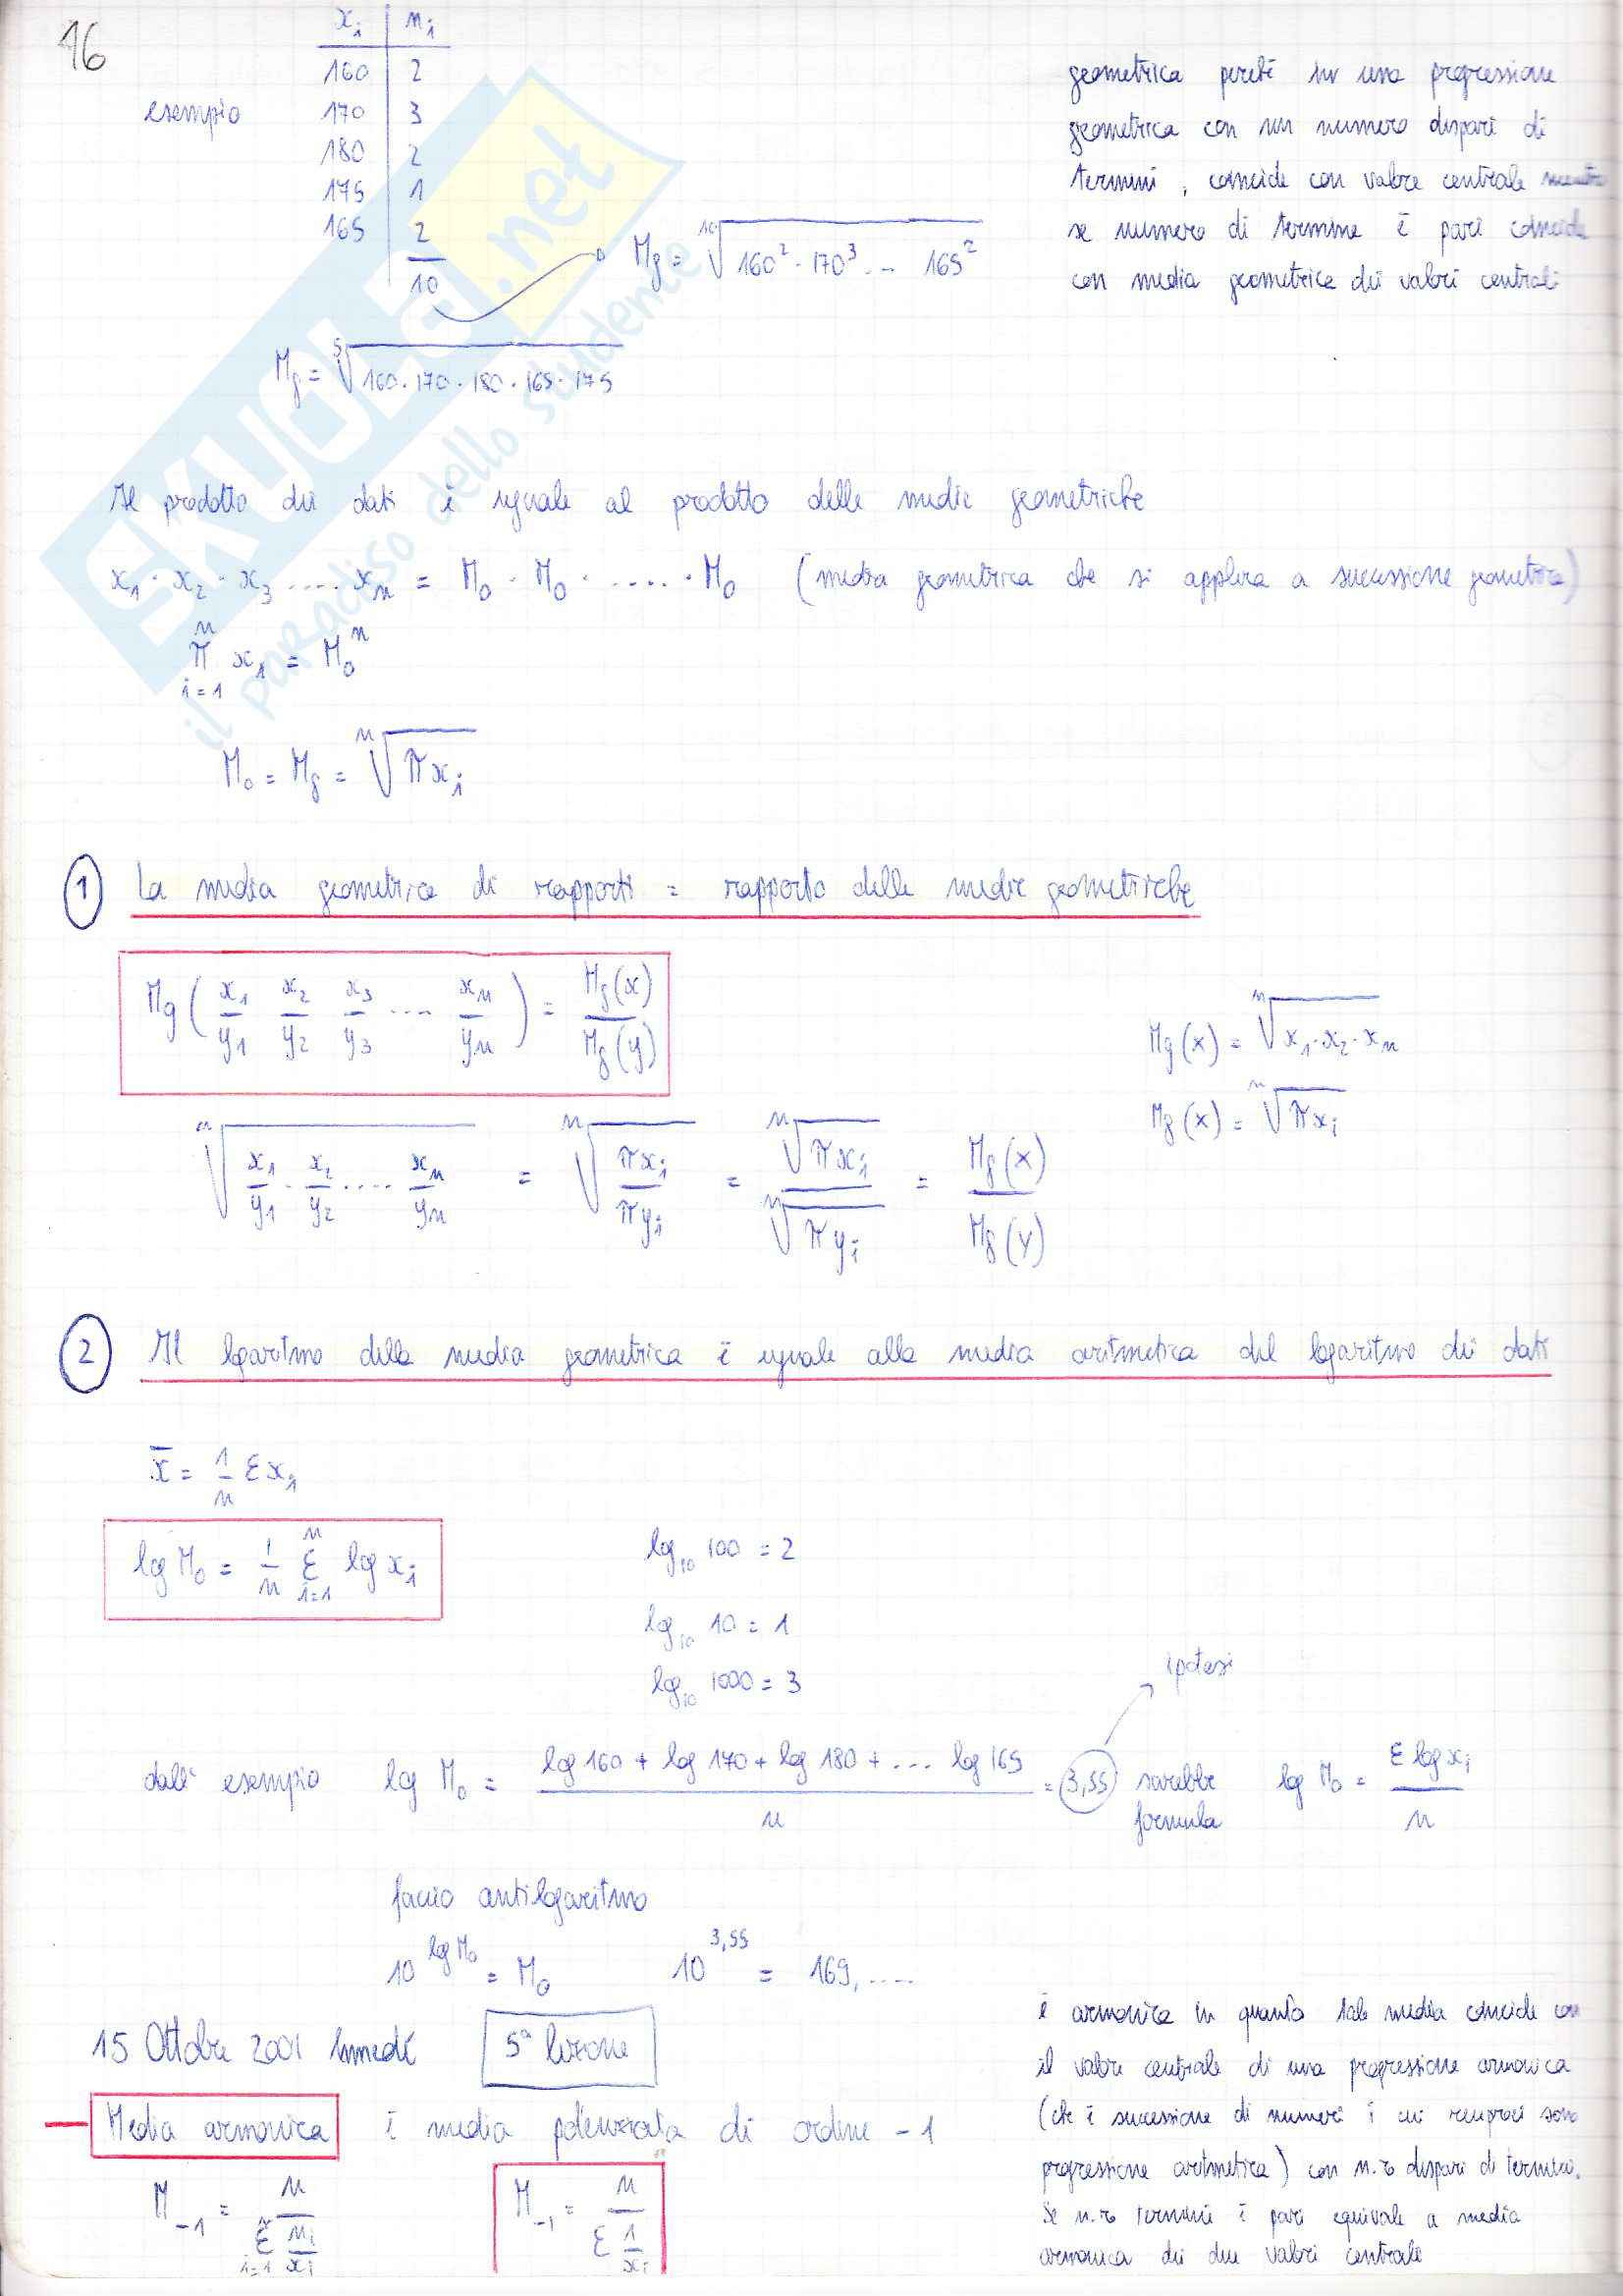 16
x_i | n_i
160 | 2
esempio 170 | 3
180 | 2
175 | 1
165 | 2
10
Mg = ¹⁰√(160² · 170³ .. 165²)
Mg = ⁵√(160 · 170 · 180 · 165 · 175)
geometrica perché in una progressione
geometrica con un numero dispari di
termini, coincide con valore centrale
se numero di termine è pari coincide
con media geometrica dei valori centrali
SKUOLA.net
il paradiso dello studente
Il prodotto dei dati è uguale al prodotto delle medie geometriche
x₁ · x₂ · x₃ .... xₙ = M₀ · M₀ · ..... · M₀ (media geometrica che si applica a successione geometrica)
n
π x_i = M₀ⁿ
i=1
M₀ = Mg = ⁿ√(π x_i)
① La media geometrica di rapporti = rapporto delle medie geometriche
Mg ( x₁/y₁ x₂/y₂ x₃/y₃ .... xₙ/yₙ ) = Mg(x)/Mg(y)
Mg(x) = ⁿ√(x₁·x₂·xₙ)
Mg(x) = ⁿ√(π x_i)
ⁿ√(x₁/y₁ · x₂/y₂ .... xₙ/yₙ) = ⁿ√(πx_i/πy_i) = ⁿ√(πx_i)/ⁿ√(πy_i) = Mg(x)/Mg(y)
② Il logaritmo della media geometrica è uguale alla media aritmetica del logaritmo dei dati
x̄ = 1/n Σx_i
log M₀ = 1/n Σ_{i=1}^{n} log x_i
log₁₀ 100 = 2
log₁₀ 10 = 1
log₁₀ 1000 = 3
ipotesi
dall' esempio log M₀ = (log 160 + log 170 + log 180 + ... log 165)/n = 3,55 sarebbe formula log M₀ = Σ log x_i / n
faccio antilogaritmo
10^{log M₀} = M₀ 10^{3,55} = 169,....
15 Ottobre 2001 lunedì 5ª lezione
Media armonica è media potenziata di ordine -1
M₋₁ = n / Σ_{i=1} n_i/x_i
M₋₁ = n / Σ 1/x_i
è armonica in quanto tale media coincide con
il valore centrale di una progressione armonica
(che è successione di numeri i cui reciproci sono
progressione aritmetica) con n.ro dispari di termini.
Se n.ro termini è pari equivale a media
armonica dei due valori centrale